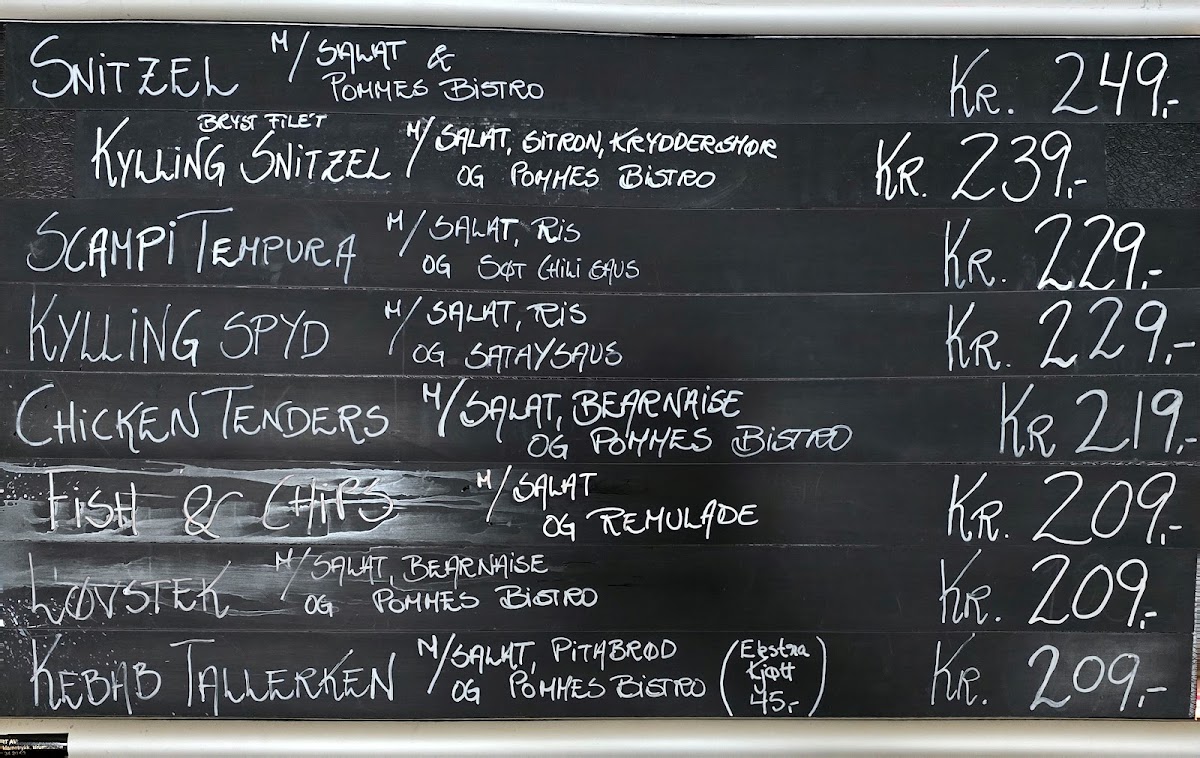 SNITZEL M/ SALAT &
POMMES BISTRO KR. 249,-
BRYST FILET
KYLLING SNITZEL M/ SALAT, SITRON, KRYDDERSMØR
OG POMMES BISTRO KR. 239,-
SCAMPI TEMPURA M/ SALAT, RIS
OG SØT CHILI SAUS KR. 229,-
KYLLING SPYD M/ SALAT, RIS
OG SATAYSAUS KR. 229,-
CHICKEN TENDERS M/ SALAT, BEARNAISE
OG POMMES BISTRO KR 219,-
FISH & CHIPS M/ SALAT
OG REMULADE KR. 209,-
LØVSTEK M/ SALAT, BEARNAISE
OG POMMES BISTRO KR. 209,-
KEBAB TALLERKEN M/ SALAT, PITABRØD
OG POMMES BISTRO (Ekstra
Kjøtt
45,-) KR. 209,-